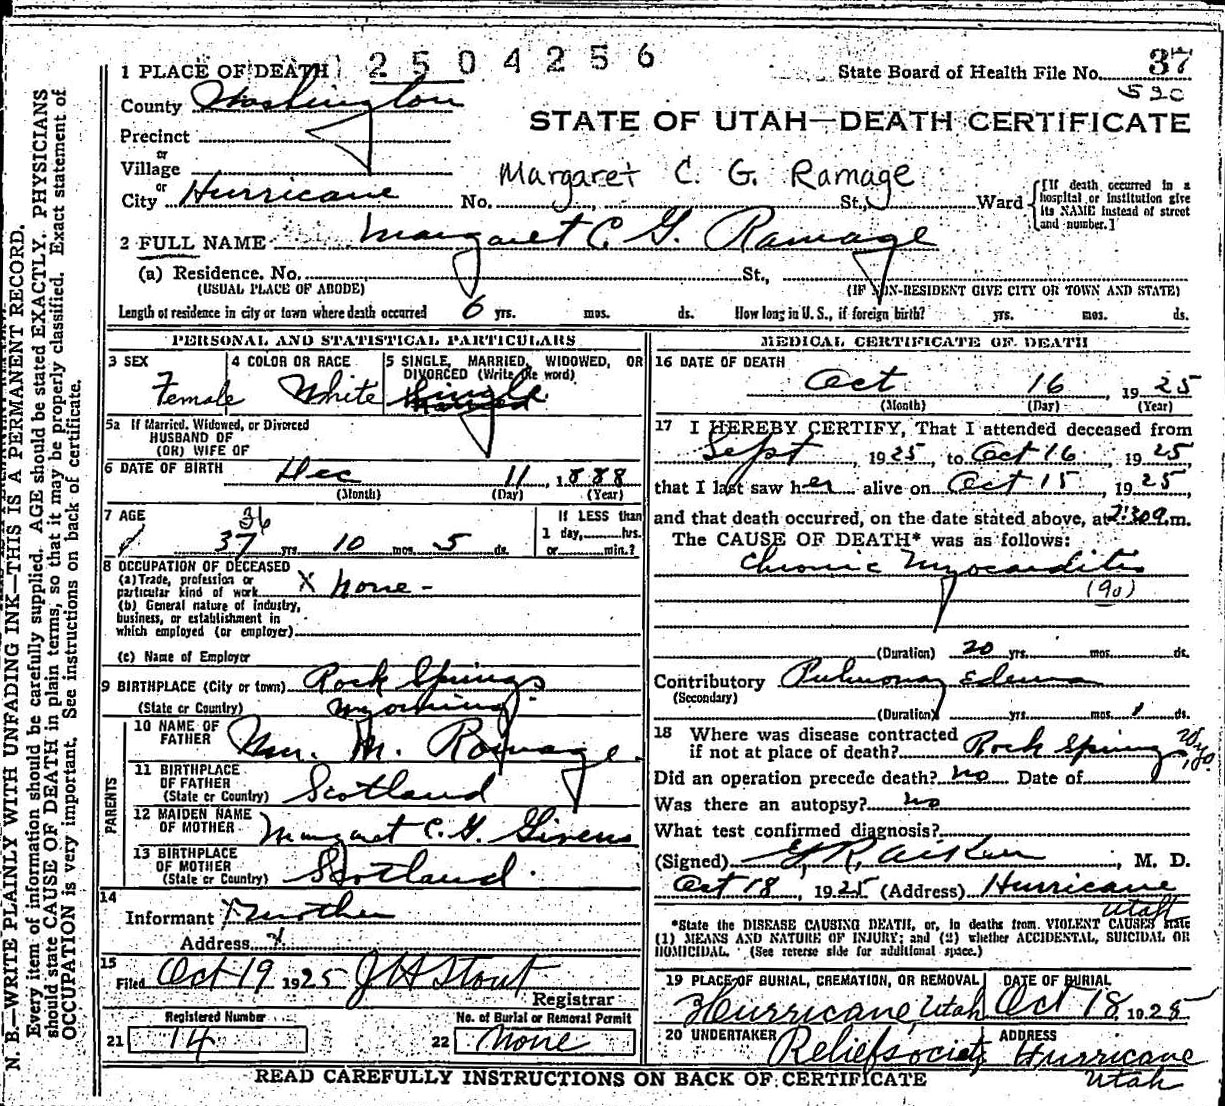 2504256
1 PLACE OF DEATH
State Board of Health File No. 37
520
County Washington
STATE OF UTAH—DEATH CERTIFICATE
Precinct
or
Village
Margaret C. G. Ramage
or
City Hurricane No. St., Ward
[If death occurred in a hospital or institution give its NAME instead of street and number.]
2 FULL NAME Margaret C. G. Ramage
(a) Residence. No. St.,
(USUAL PLACE OF ABODE) (IF NON-RESIDENT GIVE CITY OR TOWN AND STATE)
Length of residence in city or town where death occurred 6 yrs. mos. ds. How long in U. S., if foreign birth? yrs. mos. ds.
PERSONAL AND STATISTICAL PARTICULARS
3 SEX
Female
4 COLOR OR RACE
White
5 SINGLE, MARRIED, WIDOWED, OR
DIVORCED (Write the word)
Single
5a If Married, Widowed, or Divorced
HUSBAND OF
(OR) WIFE OF
6 DATE OF BIRTH Dec 11, 1888
(Month) (Day) (Year)
7 AGE
36
37 yrs 10 mos. 5 ds.
If LESS than
1 day, hrs.
or min.?
8 OCCUPATION OF DECEASED
(a) Trade, profession or
particular kind of work X none -
(b) General nature of industry,
business, or establishment in
which employed (or employer)
(c) Name of Employer
9 BIRTHPLACE (City or town) Rock Springs
(State or Country) Wyoming
PARENTS
10 NAME OF
FATHER Wm. M. Ramage
11 BIRTHPLACE
OF FATHER
(State or Country) Scotland
12 MAIDEN NAME
OF MOTHER Margaret C. G. Givens
13 BIRTHPLACE
OF MOTHER
(State or Country) Scotland.
14
Informant X Mother
Address X
15
Filed Oct 19 1925 J H Stout
Registrar
Registered Number No. of Burial or Removal Permit
21 14 22 None
MEDICAL CERTIFICATE OF DEATH
16 DATE OF DEATH
Oct 16, 1925
(Month) (Day) (Year)
17 I HEREBY CERTIFY, That I attended deceased from
Sept, 1925, to Oct 16, 1925,
that I last saw her alive on Oct 15, 1925,
and that death occurred, on the date stated above, at 2:30 a.m.
The CAUSE OF DEATH* was as follows:
Chronic Myocarditis
(90)
(Duration) 20 yrs. mos. ds.
Contributory Pulmonary Edema
(Secondary)
(Duration) yrs. mos. 1 ds.
18 Where was disease contracted
if not at place of death? Rock Springs, Wyo.
Did an operation precede death? no Date of
Was there an autopsy? no
What test confirmed diagnosis?
(Signed) Aiken, M. D.
Oct 18, 1925 (Address) Hurricane
Utah
*State the DISEASE CAUSING DEATH, or, in deaths from VIOLENT CAUSES state
(1) MEANS AND NATURE OF INJURY; and (2) whether ACCIDENTAL, SUICIDAL OR
HOMICIDAL. (See reverse side for additional space.)
19 PLACE OF BURIAL, CREMATION, OR REMOVAL
Hurricane, Utah
DATE OF BURIAL
Oct 18 1925
20 UNDERTAKER
Relief society
ADDRESS
Hurricane
Utah
READ CAREFULLY INSTRUCTIONS ON BACK OF CERTIFICATE
N. B.—WRITE PLAINLY WITH UNFADING INK—THIS IS A PERMANENT RECORD.
Every item of information should be carefully supplied. AGE should be stated EXACTLY. PHYSICIANS
should state CAUSE OF DEATH in plain terms, so that it may be properly classified. Exact statement of
OCCUPATION is very important. See instructions on back of certificate.